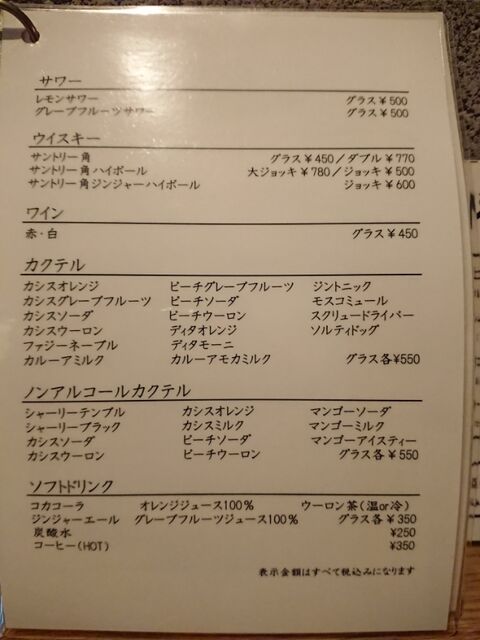 サワー
レモンサワー グラス￥500
グレープフルーツサワー グラス￥500
ウイスキー
サントリー角 グラス￥450／ダブル￥770
サントリー角ハイボール 大ジョッキ￥780／ジョッキ￥500
サントリー角ジンジャーハイボール ジョッキ￥600
ワイン
赤・白 グラス￥450
カクテル
カシスオレンジ ピーチグレープフルーツ ジントニック
カシスグレープフルーツ ピーチソーダ モスコミュール
カシスソーダ ピーチウーロン スクリュードライバー
カシスウーロン ディタオレンジ ソルティドッグ
ファジーネーブル ディタモーニ
カルーアミルク カルーアモカミルク グラス各¥550
ノンアルコールカクテル
シャーリーテンプル カシスオレンジ マンゴーソーダ
シャーリーブラック カシスミルク マンゴーミルク
カシスソーダ ピーチソーダ マンゴーアイスティー
カシスウーロン ピーチウーロン グラス各￥550
ソフトドリンク
コカコーラ オレンジジュース100% ウーロン茶(温or冷)
ジンジャーエール グレープフルーツジュース100% グラス各￥350
炭酸水 ¥250
コーヒー(HOT) ¥350
表示金額はすべて税込みになります